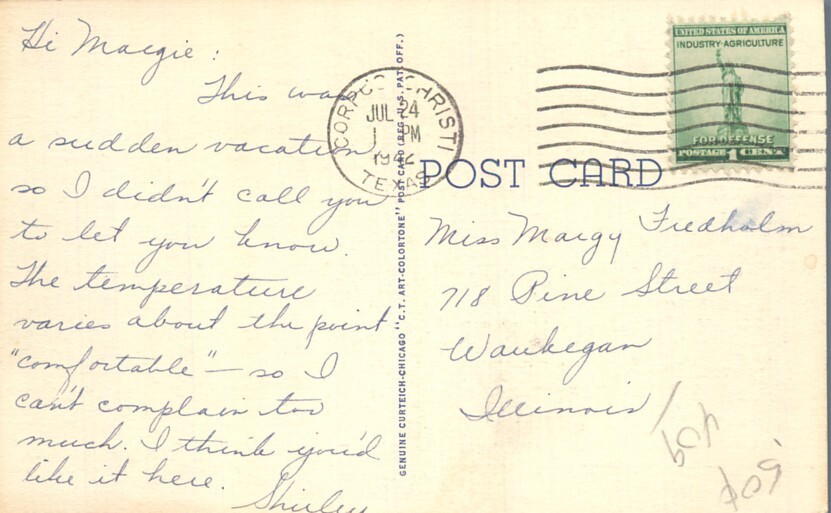 Hi Margie:
This was
a sudden vacation
so I didn't call you
to let you know.
The temperature
varies about the point
"comfortable" — so I
can't complain too
much. I think you'd
like it here.
Shirley
GENUINE CURTEICH-CHICAGO "C.T. ART-COLORTONE" POST CARD (REG. U.S. PAT. OFF.)
CORPUS CHRISTI
JUL 24
1 PM
1942
TEXAS
UNITED STATES OF AMERICA
INDUSTRY·AGRICULTURE
FOR DEFENSE
POSTAGE 1 CENT
POST CARD
Miss Margy Fredholm
718 Pine Street
Waukegan
Illinois